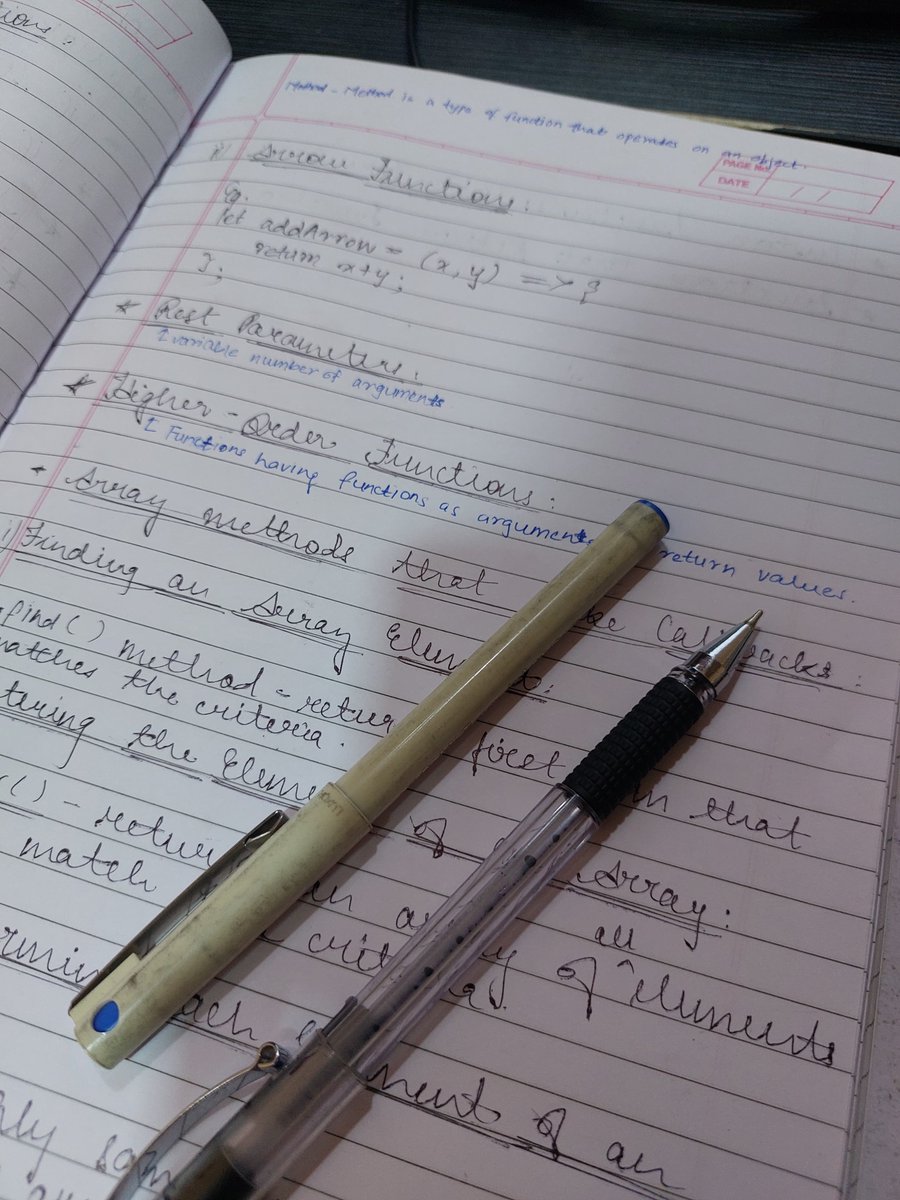 tions :
Method - Method is a type of function that operates on an object.
PAGE No.
DATE / /
Arrow Functions :
Eg.
let addArrow = (x, y) => {
return x+y;
};
* Rest Parameters :
↑ variable number of arguments
* Higher-Order Functions :
↑ Functions having functions as arguments return values.
Array methods that Callbacks :
i) Finding an Array Element :
find() method - return first that
matches the criteria.
the Elements of Array :
() - return an array of all elements
match criteria.
each element of an